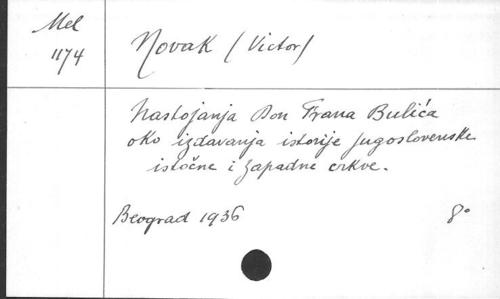 Mel
1174
Novak (Victor)
Nastojanja Don Frana Bulića
oko izdavanja istorije jugoslovenske
istočne i zapadne crkve.
Beograd 1936
8°